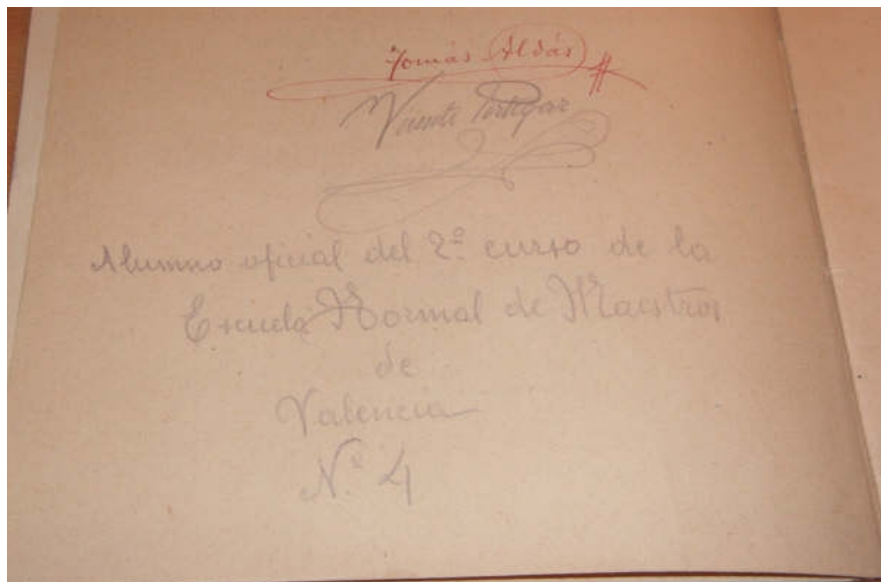 Tomás Aldás
Vicente
Alumno oficial del 2º curso de la
Escuela Normal de Maestros
de
Valencia
Nº 4